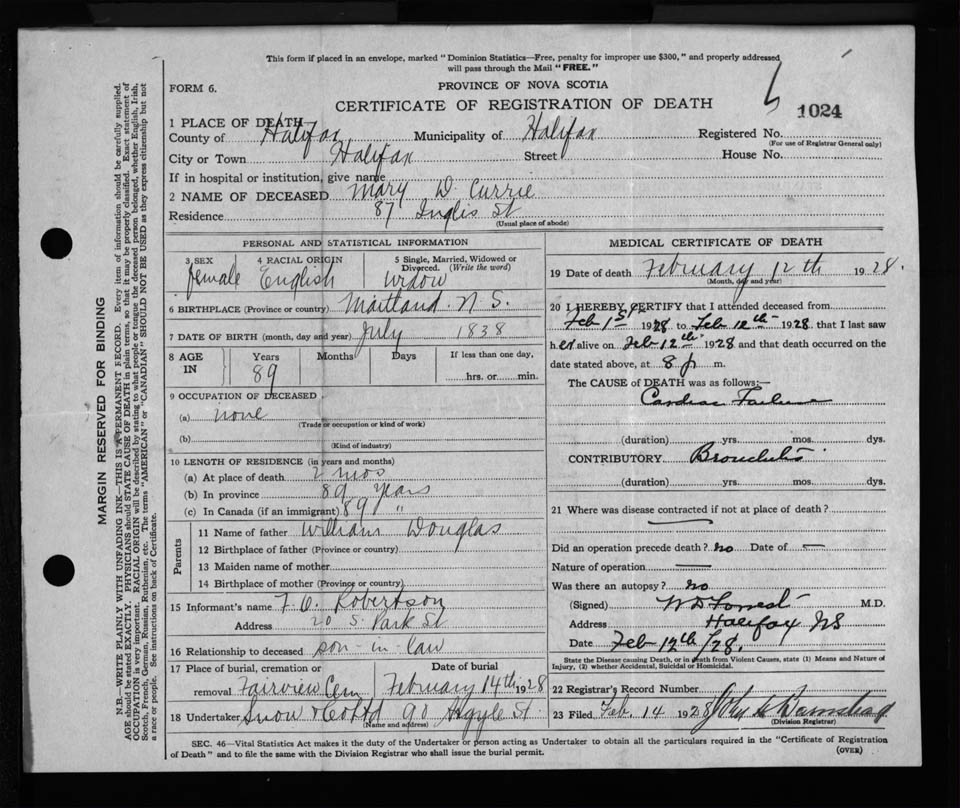 This form if placed in an envelope, marked "Dominion Statistics—Free, penalty for improper use $300," and properly addressed
will pass through the Mail "FREE."
FORM 6.
PROVINCE OF NOVA SCOTIA
CERTIFICATE OF REGISTRATION OF DEATH
1024
1 PLACE OF DEATH
County of Halifax Municipality of Halifax Registered No.
(For use of Registrar General only)
City or Town Halifax Street House No.
If in hospital or institution, give name
2 NAME OF DECEASED Mary D. Currie
Residence 87 Inglis St
(Usual place of abode)
PERSONAL AND STATISTICAL INFORMATION
3 SEX 4 RACIAL ORIGIN 5 Single, Married, Widowed or
Divorced. (Write the word)
female English Widow
6 BIRTHPLACE (Province or country) Maitland N.S.
7 DATE OF BIRTH (month, day and year) July 1838
8 AGE IN Years Months Days If less than one day,
89 hrs. or min.
9 OCCUPATION OF DECEASED
(a) none
(Trade or occupation or kind of work)
(b)
(Kind of industry)
10 LENGTH OF RESIDENCE (in years and months)
(a) At place of death 2 mos
(b) In province 89 years
(c) In Canada (if an immigrant) 89 "
Parents
11 Name of father William Douglas
12 Birthplace of father (Province or country)
13 Maiden name of mother
14 Birthplace of mother (Province or country)
15 Informant's name F. O. Robertson
Address 20 S. Park St
16 Relationship to deceased son-in-law
17 Place of burial, cremation or Date of burial
removal Fairview Cem February 14th 1928
18 Undertaker Snow & Co Ltd 90 Argyle St.
(Name and address)
MEDICAL CERTIFICATE OF DEATH
19 Date of death February 12th 1928.
(Month, day and year)
20 I HEREBY CERTIFY that I attended deceased from
Feb 1st 1928 to Feb 12th 1928 that I last saw
her alive on Feb 12th 1928 and that death occurred on the
date stated above, at 8 p m.
The CAUSE of DEATH was as follows:—
Cardiac Failure
(duration) yrs. mos. dys.
CONTRIBUTORY Bronchitis
(duration) yrs. mos. dys.
21 Where was disease contracted if not at place of death?
Did an operation precede death? no Date of —
Nature of operation —
Was there an autopsy? no
(Signed) W D Forrest M.D.
Address Halifax NS
Date Feb 12th/28.
State the Disease causing Death, or in death from Violent Causes, state (1) Means and Nature of
Injury, (2) whether Accidental, Suicidal or Homicidal.
22 Registrar's Record Number
23 Filed Feb. 14 1928
(Division Registrar)
SEC. 46—Vital Statistics Act makes it the duty of the Undertaker or person acting as Undertaker to obtain all the particulars required in the "Certificate of Registration
of Death" and to file the same with the Division Registrar who shall issue the burial permit. (OVER)
MARGIN RESERVED FOR BINDING
N.B.—WRITE PLAINLY WITH UNFADING INK—THIS IS A PERMANENT RECORD. Every item of information should be carefully supplied.
AGE should be stated EXACTLY. PHYSICIANS should STATE CAUSE OF DEATH in plain terms, so that it may be properly classified. Exact statement of
OCCUPATION is very important. RACIAL ORIGIN will be described by stating to what people or tongue the deceased person belonged, whether English, Irish,
Scotch, French, German, Russian, Ruthenian, etc. The terms "AMERICAN" or "CANADIAN" SHOULD NOT BE USED as they express citizenship but not
a race or people. See instructions on back of Certificate.